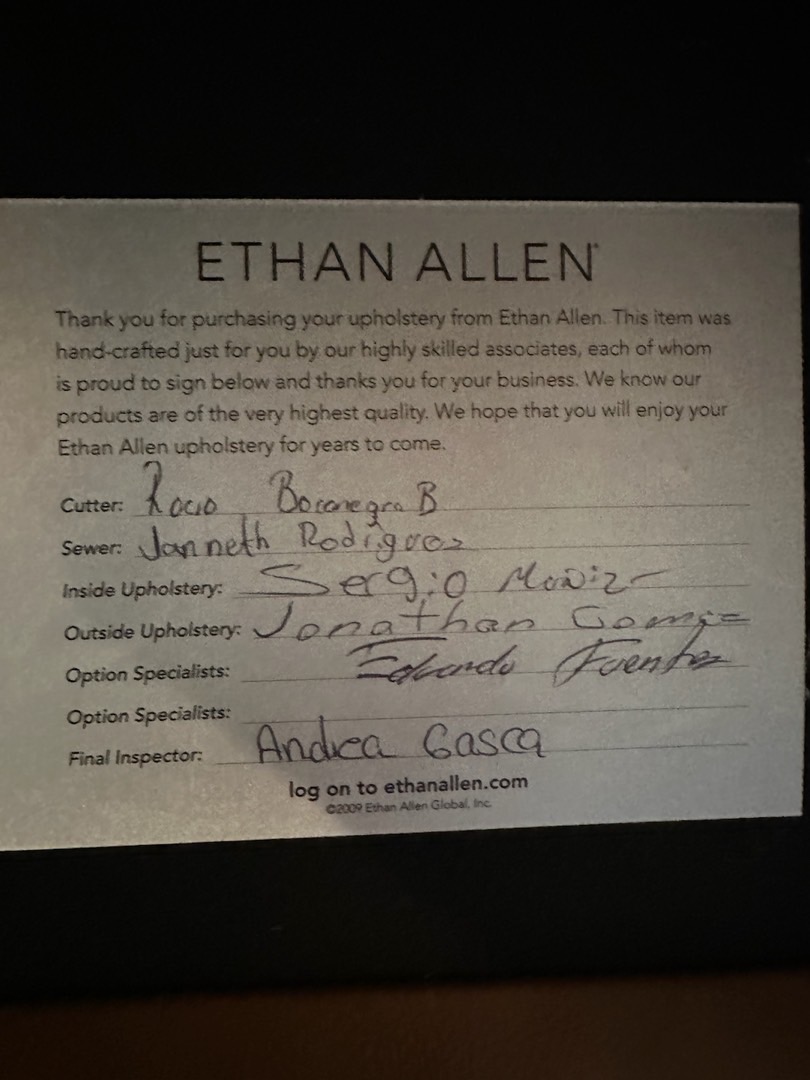 ETHAN ALLEN®
Thank you for purchasing your upholstery from Ethan Allen. This item was
hand-crafted just for you by our highly skilled associates, each of whom
is proud to sign below and thanks you for your business. We know our
products are of the very highest quality. We hope that you will enjoy your
Ethan Allen upholstery for years to come.
Cutter: Rocio Bocanegra B
Sewer: Janneth Rodriguez
Inside Upholstery: Sergio
Outside Upholstery: Jonathan
Option Specialists: Eduardo Fuentes
Option Specialists:
Final Inspector: Andrea Gasca
log on to ethanallen.com
©2009 Ethan Allen Global, Inc.